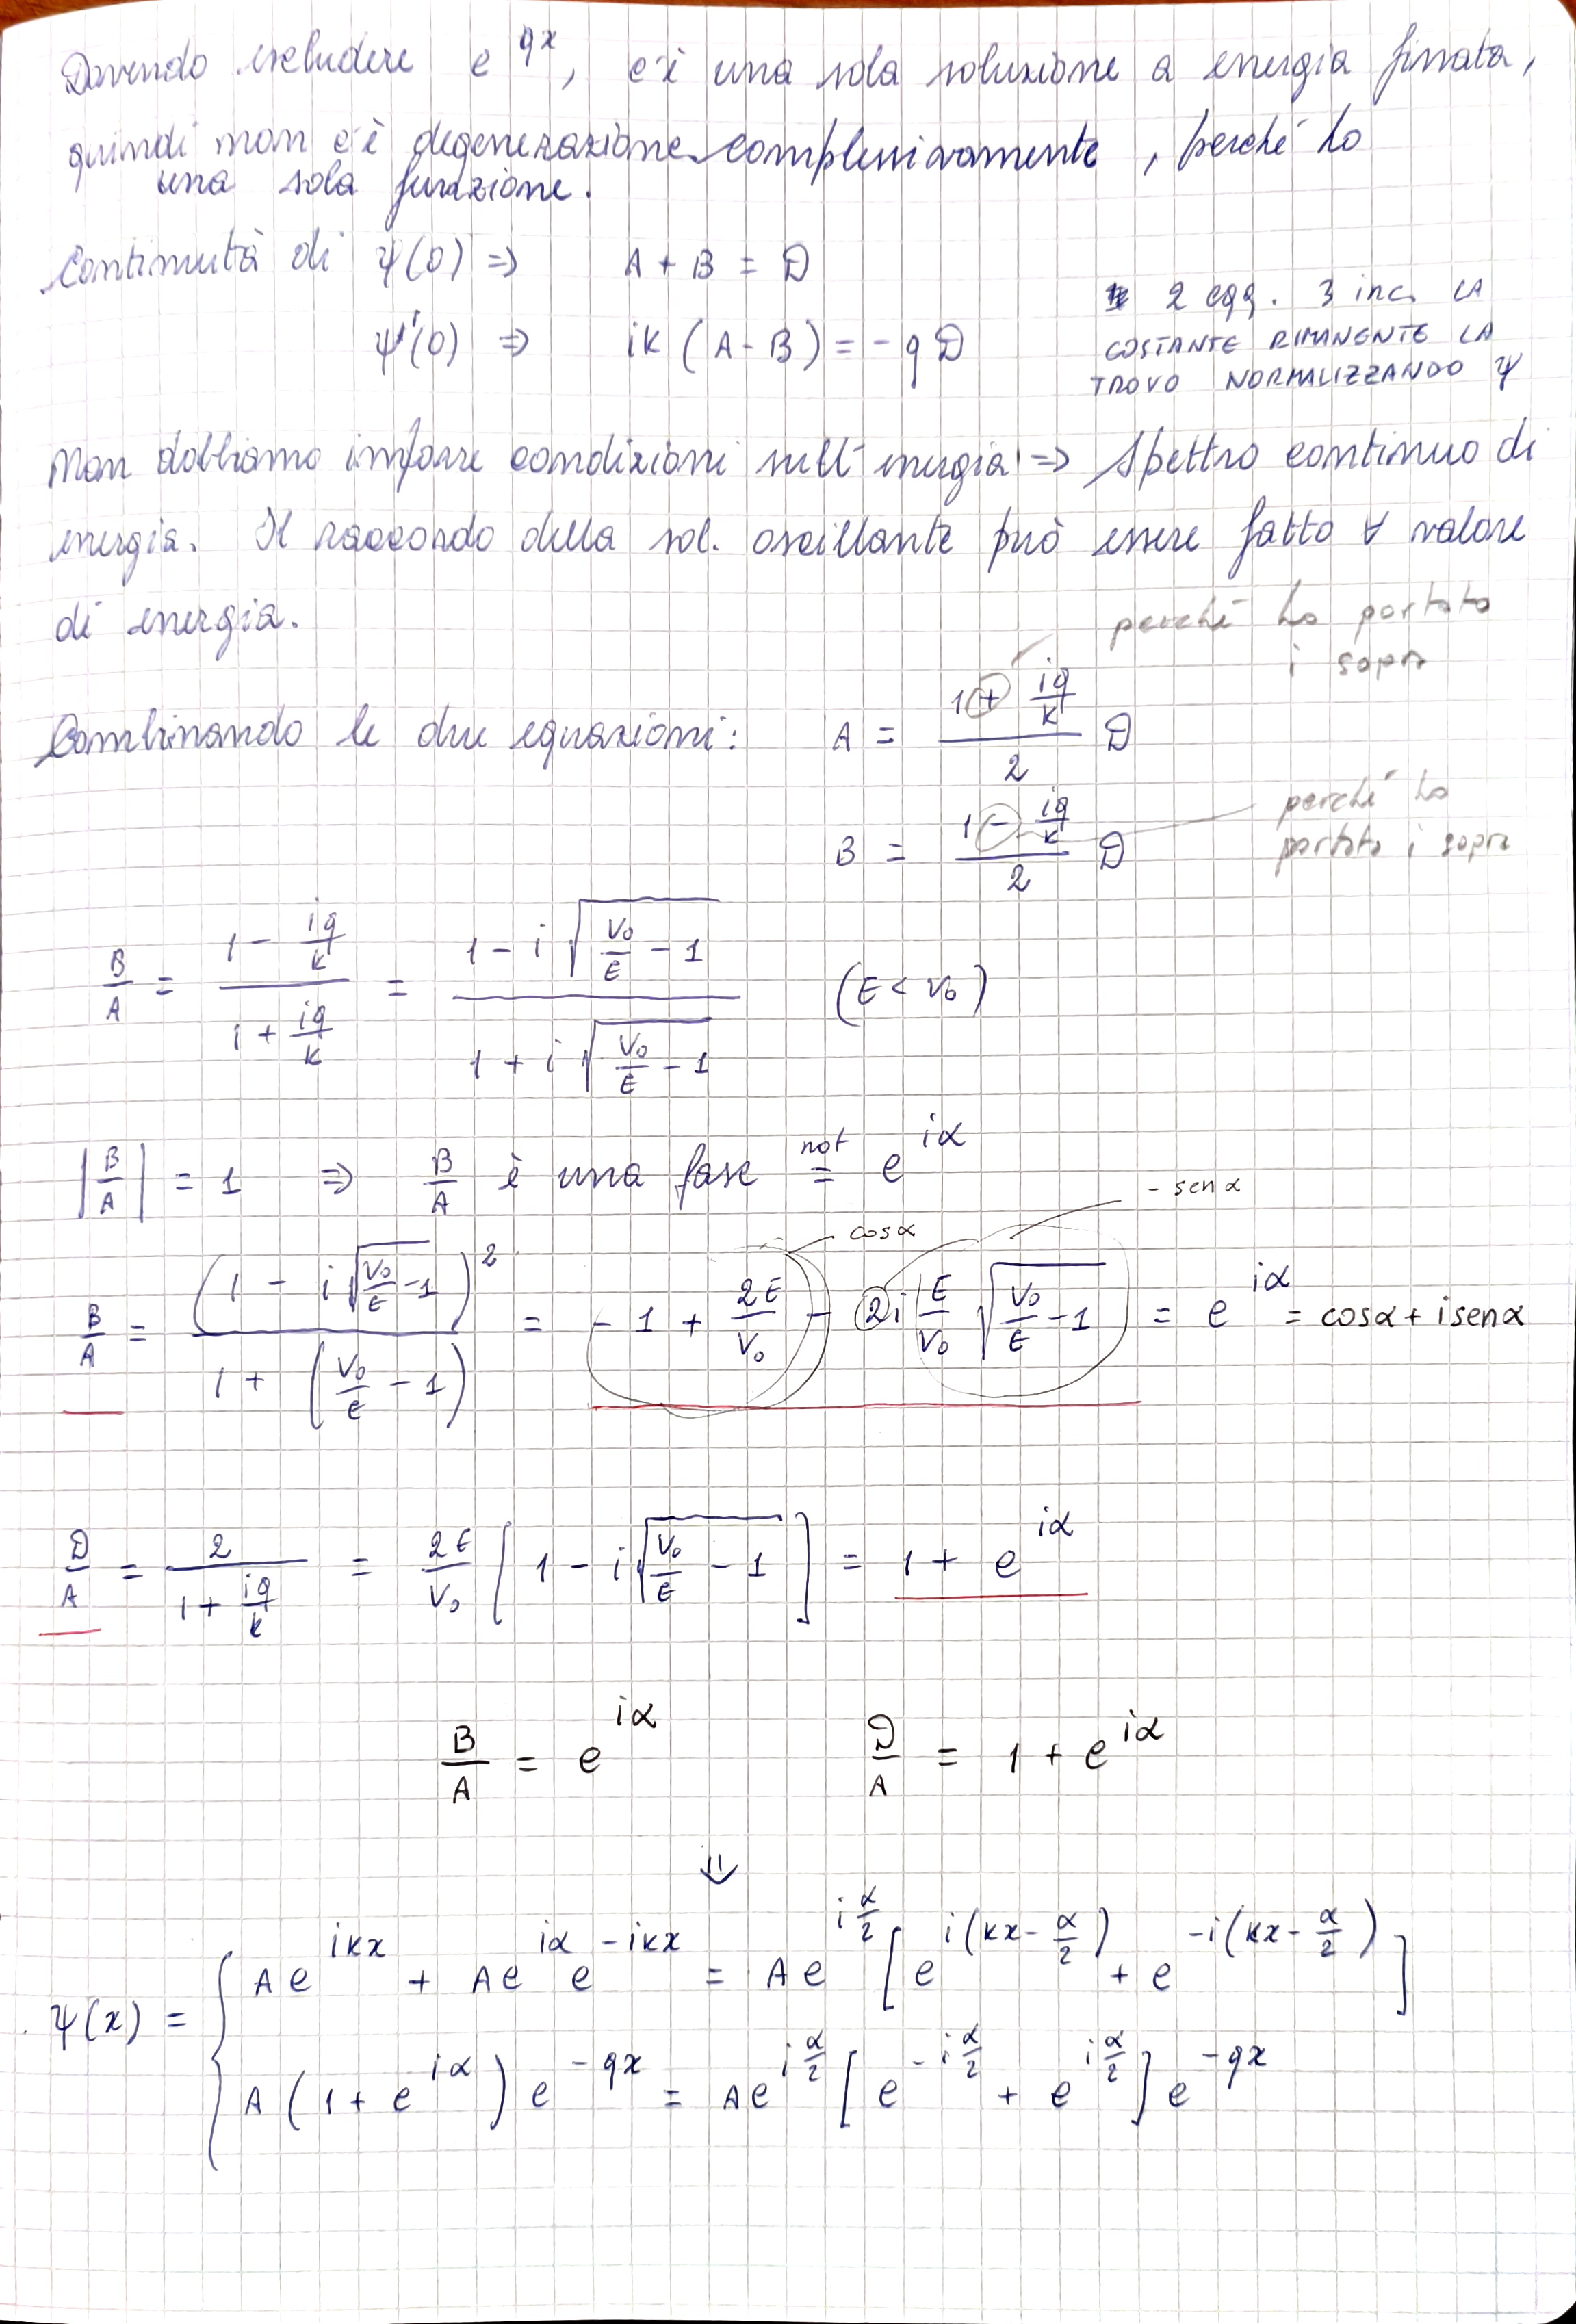 Dovendo escludere e^{qx}, c'è una sola soluzione a energia fissata,
quindi non c'è degenerazione complessivamente, perché ho
una sola funzione.
Continuità di ψ(0) ⇒ A + B = D
ψ'(0) ⇒ ik (A - B) = - q D
2 eqq. 3 inc. LA
COSTANTE RIMANENTE LA
TROVO NORMALIZZANDO ψ
Non dobbiamo imporre condizioni sull'energia ⇒ Spettro continuo di
energia. Il raccordo della sol. oscillante può essere fatto ∀ valore
di energia.
perché ho portato
i sopra
Combinando le due equazioni: A = \frac{1 + \frac{iq}{k}}{2} D
B = \frac{1 - \frac{iq}{k}}{2} D
perché ho
portato i sopra
\frac{B}{A} = \frac{1 - \frac{iq}{k}}{1 + \frac{iq}{k}} = \frac{1 - i \sqrt{\frac{V_0}{E} - 1}}{1 + i \sqrt{\frac{V_0}{E} - 1}} (E < V_0)
|\frac{B}{A}| = 1 ⇒ \frac{B}{A} è una fase \overset{not}{=} e^{iα}
- sen α
cos α
\frac{B}{A} = \frac{(1 - i \sqrt{\frac{V_0}{E} - 1})^2}{1 + (\frac{V_0}{E} - 1)} = - 1 + \frac{2E}{V_0} - 2i \frac{E}{V_0} \sqrt{\frac{V_0}{E} - 1} = e^{iα} = cos α + i sen α
\frac{D}{A} = \frac{2}{1 + \frac{iq}{k}} = \frac{2E}{V_0} [1 - i \sqrt{\frac{V_0}{E} - 1}] = 1 + e^{iα}
\frac{B}{A} = e^{iα} \frac{D}{A} = 1 + e^{iα}
⇓
ψ(x) = { A e^{ikx} + A e^{iα} e^{-ikx} = A e^{i\frac{α}{2}} [e^{i(kx - \frac{α}{2})} + e^{-i(kx - \frac{α}{2})}]
A (1 + e^{iα}) e^{-qx} = A e^{i\frac{α}{2}} [e^{-i\frac{α}{2}} + e^{i\frac{α}{2}}] e^{-qx}